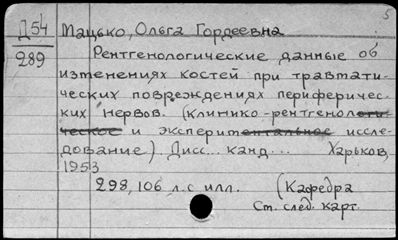 5
Д54 Мацько, Ольга Гордеевна
289 Рентгенологические данные об
изменениях костей при травмати-
ческих повреждениях перифериче-
ских нервов. (Клинико-рентгенологи-
ческое и экспериментальное иссле-
дование). Дисс... канд... Харьков,
1953
298, 106 л. с илл. (Кафедра
Ст. след. карт.